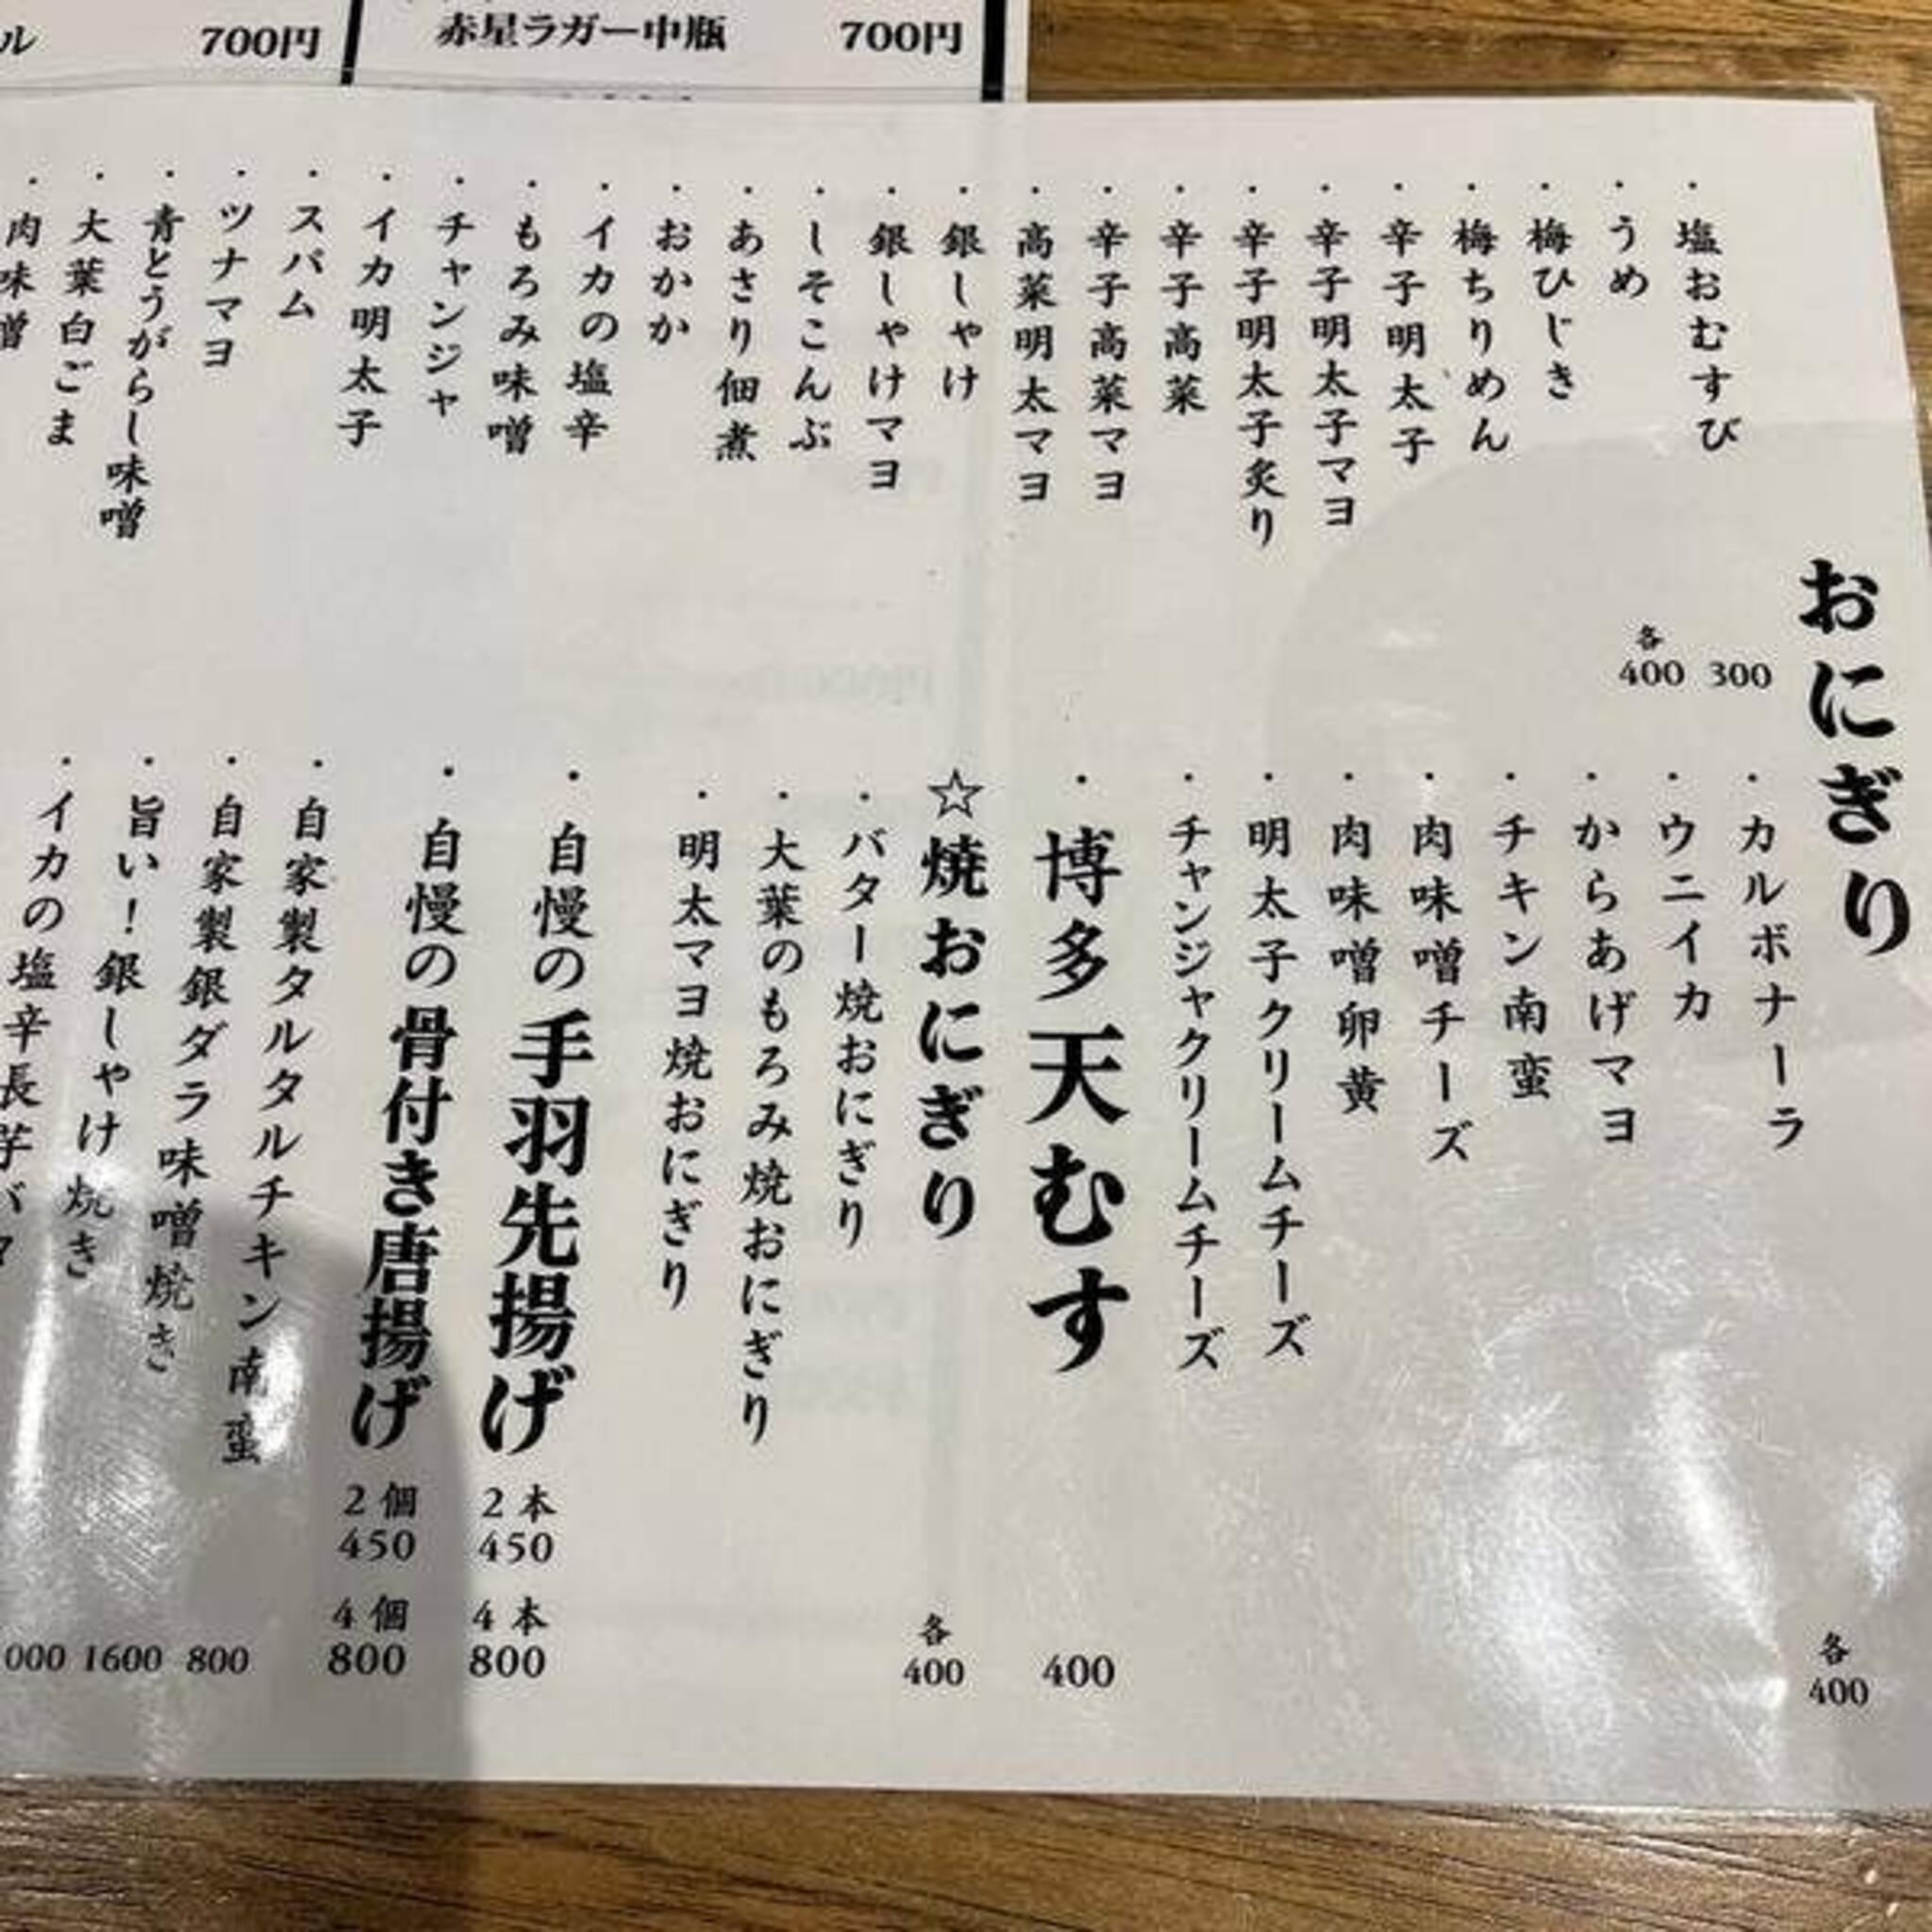 ル 700円
赤星ラガー中瓶 700円
おにぎり
・塩おむすび 300
・うめ 各400
・梅ひじき
・梅ちりめん
・辛子明太子
・辛子明太子マヨ
・辛子明太子炙り
・辛子高菜
・辛子高菜マヨ
・高菜明太マヨ
・銀しゃけ
・銀しゃけマヨ
・しそこんぶ
・あさり佃煮
・おかか
・イカの塩辛
・もろみ味噌
・チャンジャ
・イカ明太子
・スパム
・ツナマヨ
・青とうがらし味噌
・大葉白ごま
・肉味噌
・カルボナーラ 各400
・ウニイカ
・からあげマヨ
・チキン南蛮
・肉味噌チーズ
・肉味噌卵黄
・明太子クリームチーズ
・チャンジャクリームチーズ
・博多天むす 400
☆焼おにぎり 各400
・バター焼おにぎり
・大葉のもろみ焼おにぎり
・明太マヨ焼おにぎり
・自慢の手羽先揚げ 2本450 4本800
・自慢の骨付き唐揚げ 2個450 4個800
・自家製タルタルチキン南蛮 800
・自家製銀ダラ味噌焼き 1600
・旨い！銀しゃけ焼き 000
・イカの塩辛長芋バタ